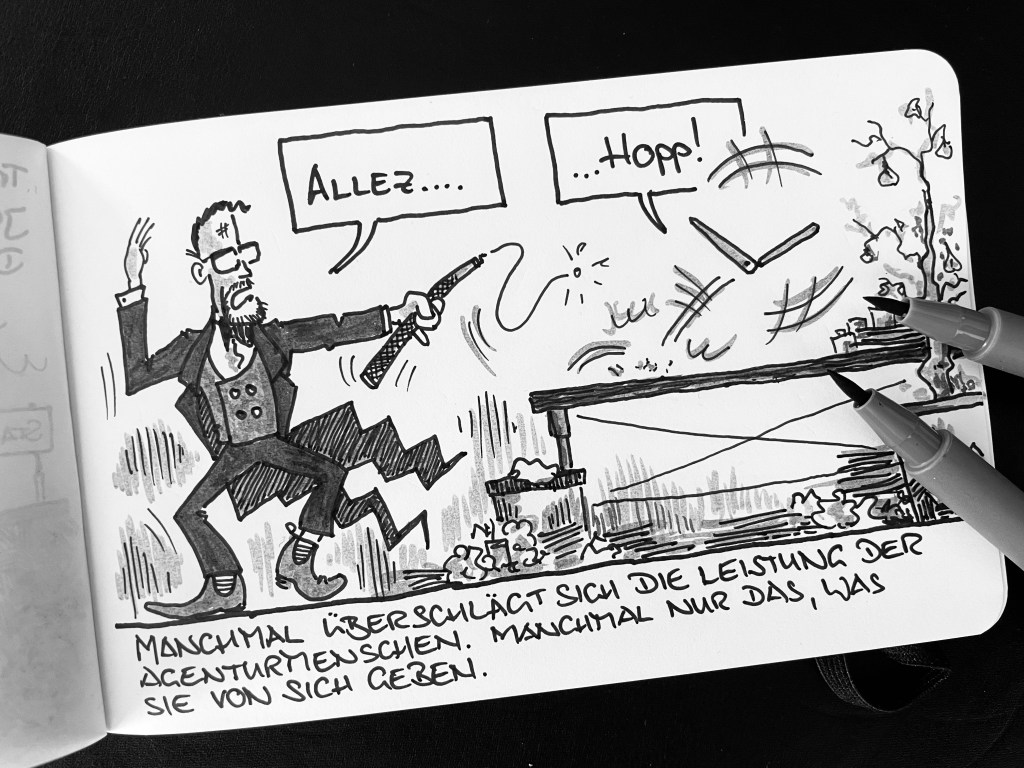 ALLEZ....
...HOPP!
MANCHMAL ÜBERSCHLÄGT SICH DIE LEISTUNG DER
AGENTURMENSCHEN. MANCHMAL NUR DAS, WAS
SIE VON SICH GEBEN.